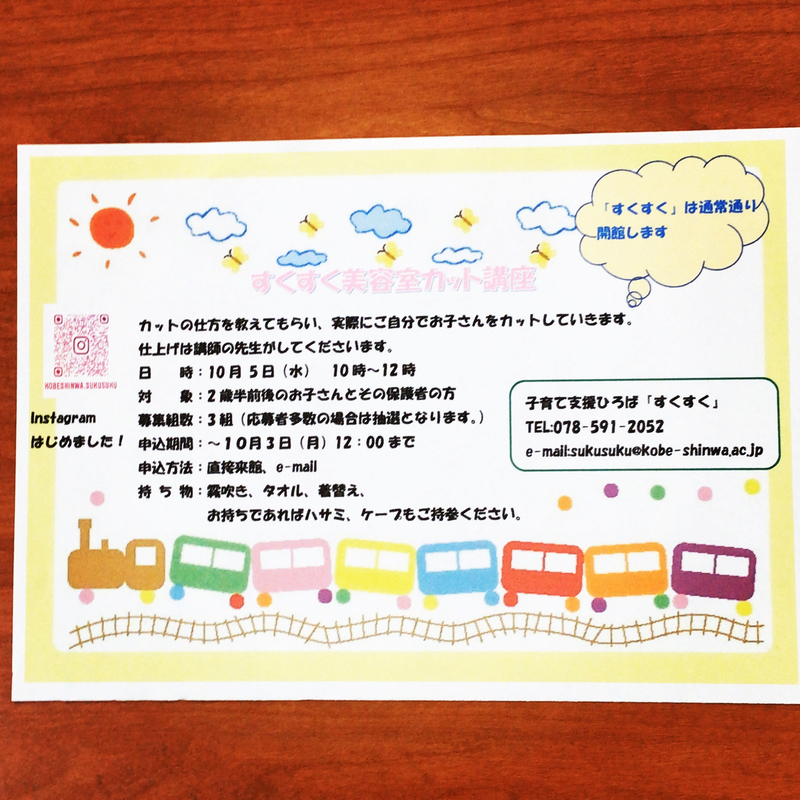 「すくすく」は通常通り
開館します
すくすく美容室カット講座
カットの仕方を教えてもらい、実際にご自分でお子さんをカットしていきます。
仕上げは講師の先生がしてくださいます。
日　　時：10月5日（水）　10時～12時
対　　象：2歳半前後のお子さんとその保護者の方
募集組数：3組（応募者多数の場合は抽選となります。）
申込期間：～10月3日（月）12：00まで
申込方法：直接来館、e-mail
持ち物：霧吹き、タオル、着替え、
お持ちであればハサミ、ケープもご持参ください。
KOBESHINWA.SUKUSUKU
Instagram
はじめました！
子育て支援ひろば「すくすく」
TEL:078-591-2052
e-mail:sukusuku@kobe-shinwa.ac.jp